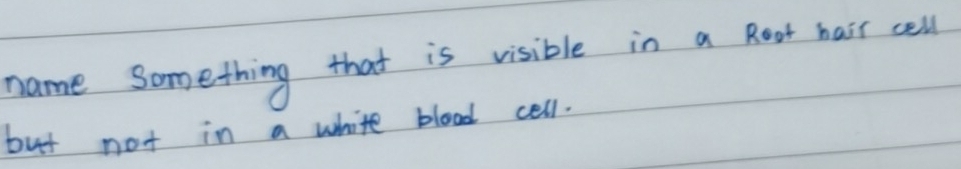 name Something that is visible in a Root hair cell
but not in a white blood cell.